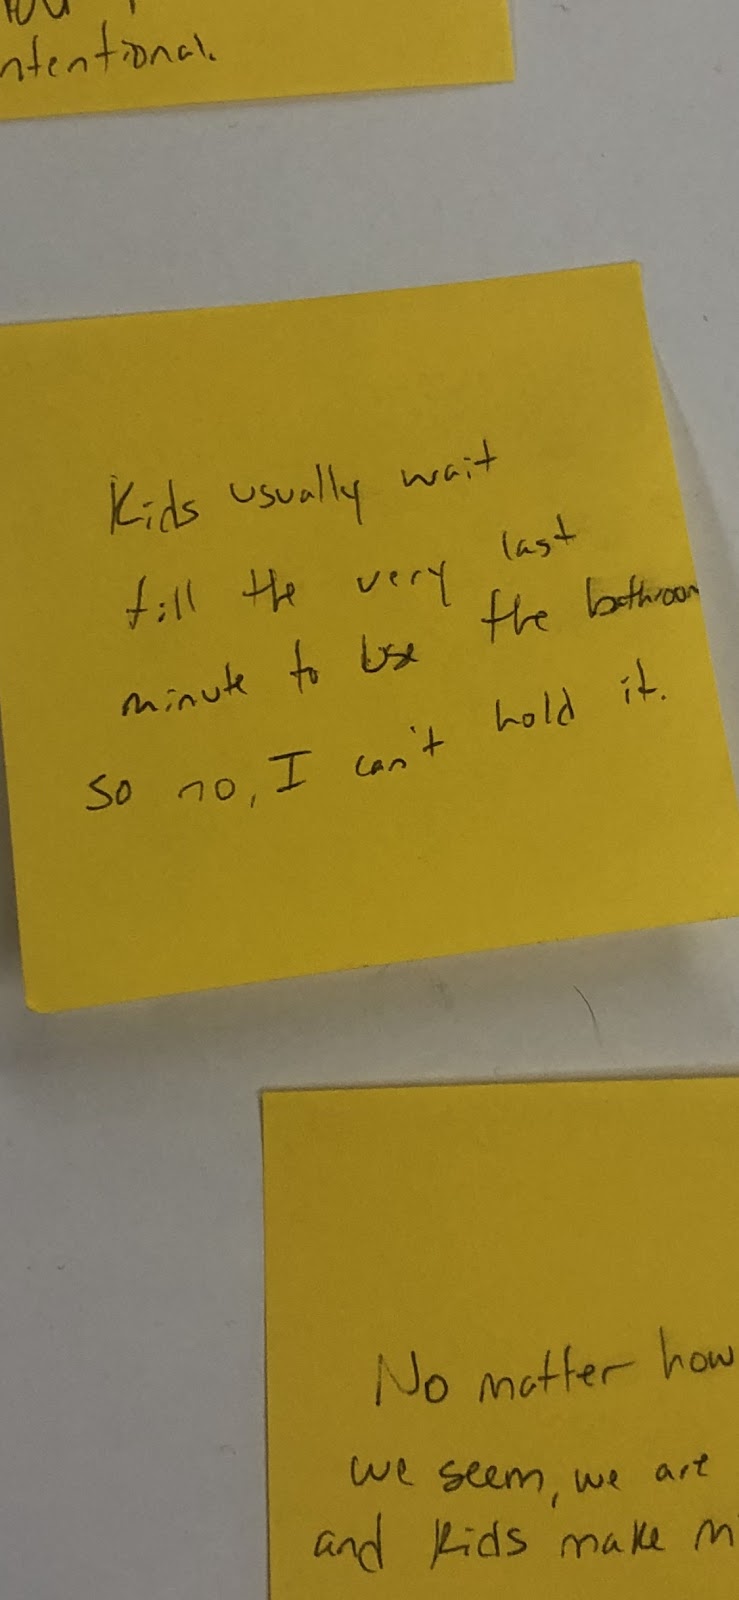 ntentional.
Kids usually wait
till the very last
minute to use the bathroom
so no, I can't hold it.
No matter how
we seem, we are
and kids make m